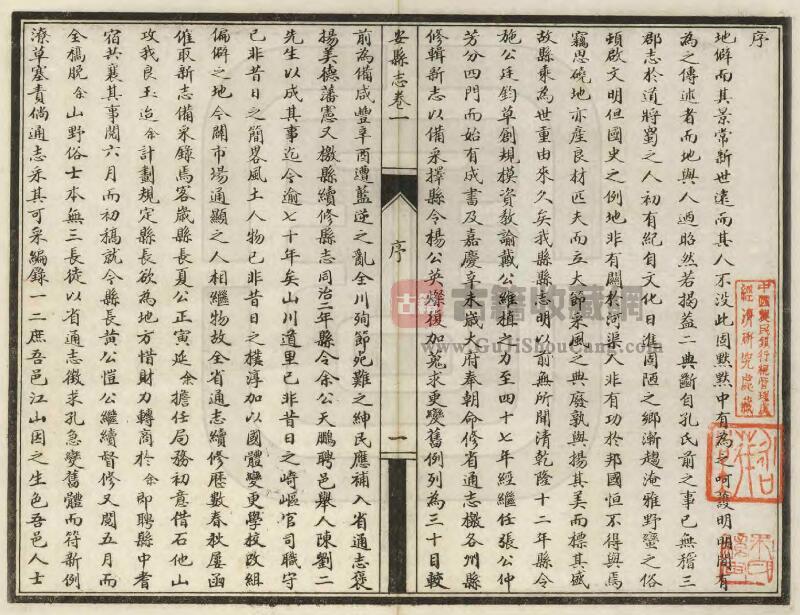 序
地僻而其景常新世遠而其人不没此固默默中有為之呵護明明間有
為之傳述者而地與人迺昭然若揭益二典斷自孔氏前之事已無稽三
郡志於道將蜀之人初有紀自文化日進固陋之鄉漸趨淹雅野蠻之俗
頓啟文明但國史之例地非有關於河渠人非有功於邦國恒不得與焉
竊思磽地亦産良材匹夫而立大節采風之典廢孰與揚其美而標其盛
故縣乘為世重由來久矣我縣縣志明以前無所聞清乾隆十二年縣令
施公廷鈞草創規模資教諭戴公維植之力至四十七年經繼任張公仲
芳分四門而始有成書及嘉慶辛未歲大府奉朝命修省通志檄各州縣
修輯新志以備采擇縣令楊公英燦復加蒐求更變舊例列為三十目較
安縣志卷一
序
一
前為備咸豐辛酉遭藍逆之亂全川殉節死難之紳民應補入省通志褒
揚美德藩憲又檄縣續修縣志同治二年縣令余公天鵬聘邑舉人陳劉二
先生以成其事迄今逾七十年矣山川道里已非昔日之崎嶇官司職守
已非昔日之簡畧風土人物已非昔日之樸淳加以國體變更學校改組
偏僻之地今闢市場通顯之人相繼物故全省通志續修歷數春秋屢函
催取新志備采錄焉客歲縣長夏公正寅延余擔任局務初意借石他山
攻我良玉迨余計劃規定縣長欲為地方惜財力轉商於余即聘縣中耆
宿共襄其事閱六月而初稿就今縣長黃公愷公繼續督修又閱五月而
全稿脫余山野俗士本無三長徒以省通志徵求孔急變舊體而符新例
潦草塞責倘通志采其可采編錄一二庶吾邑江山因之生色吾邑人士
古籍收藏網
www.GujiShouCang.com